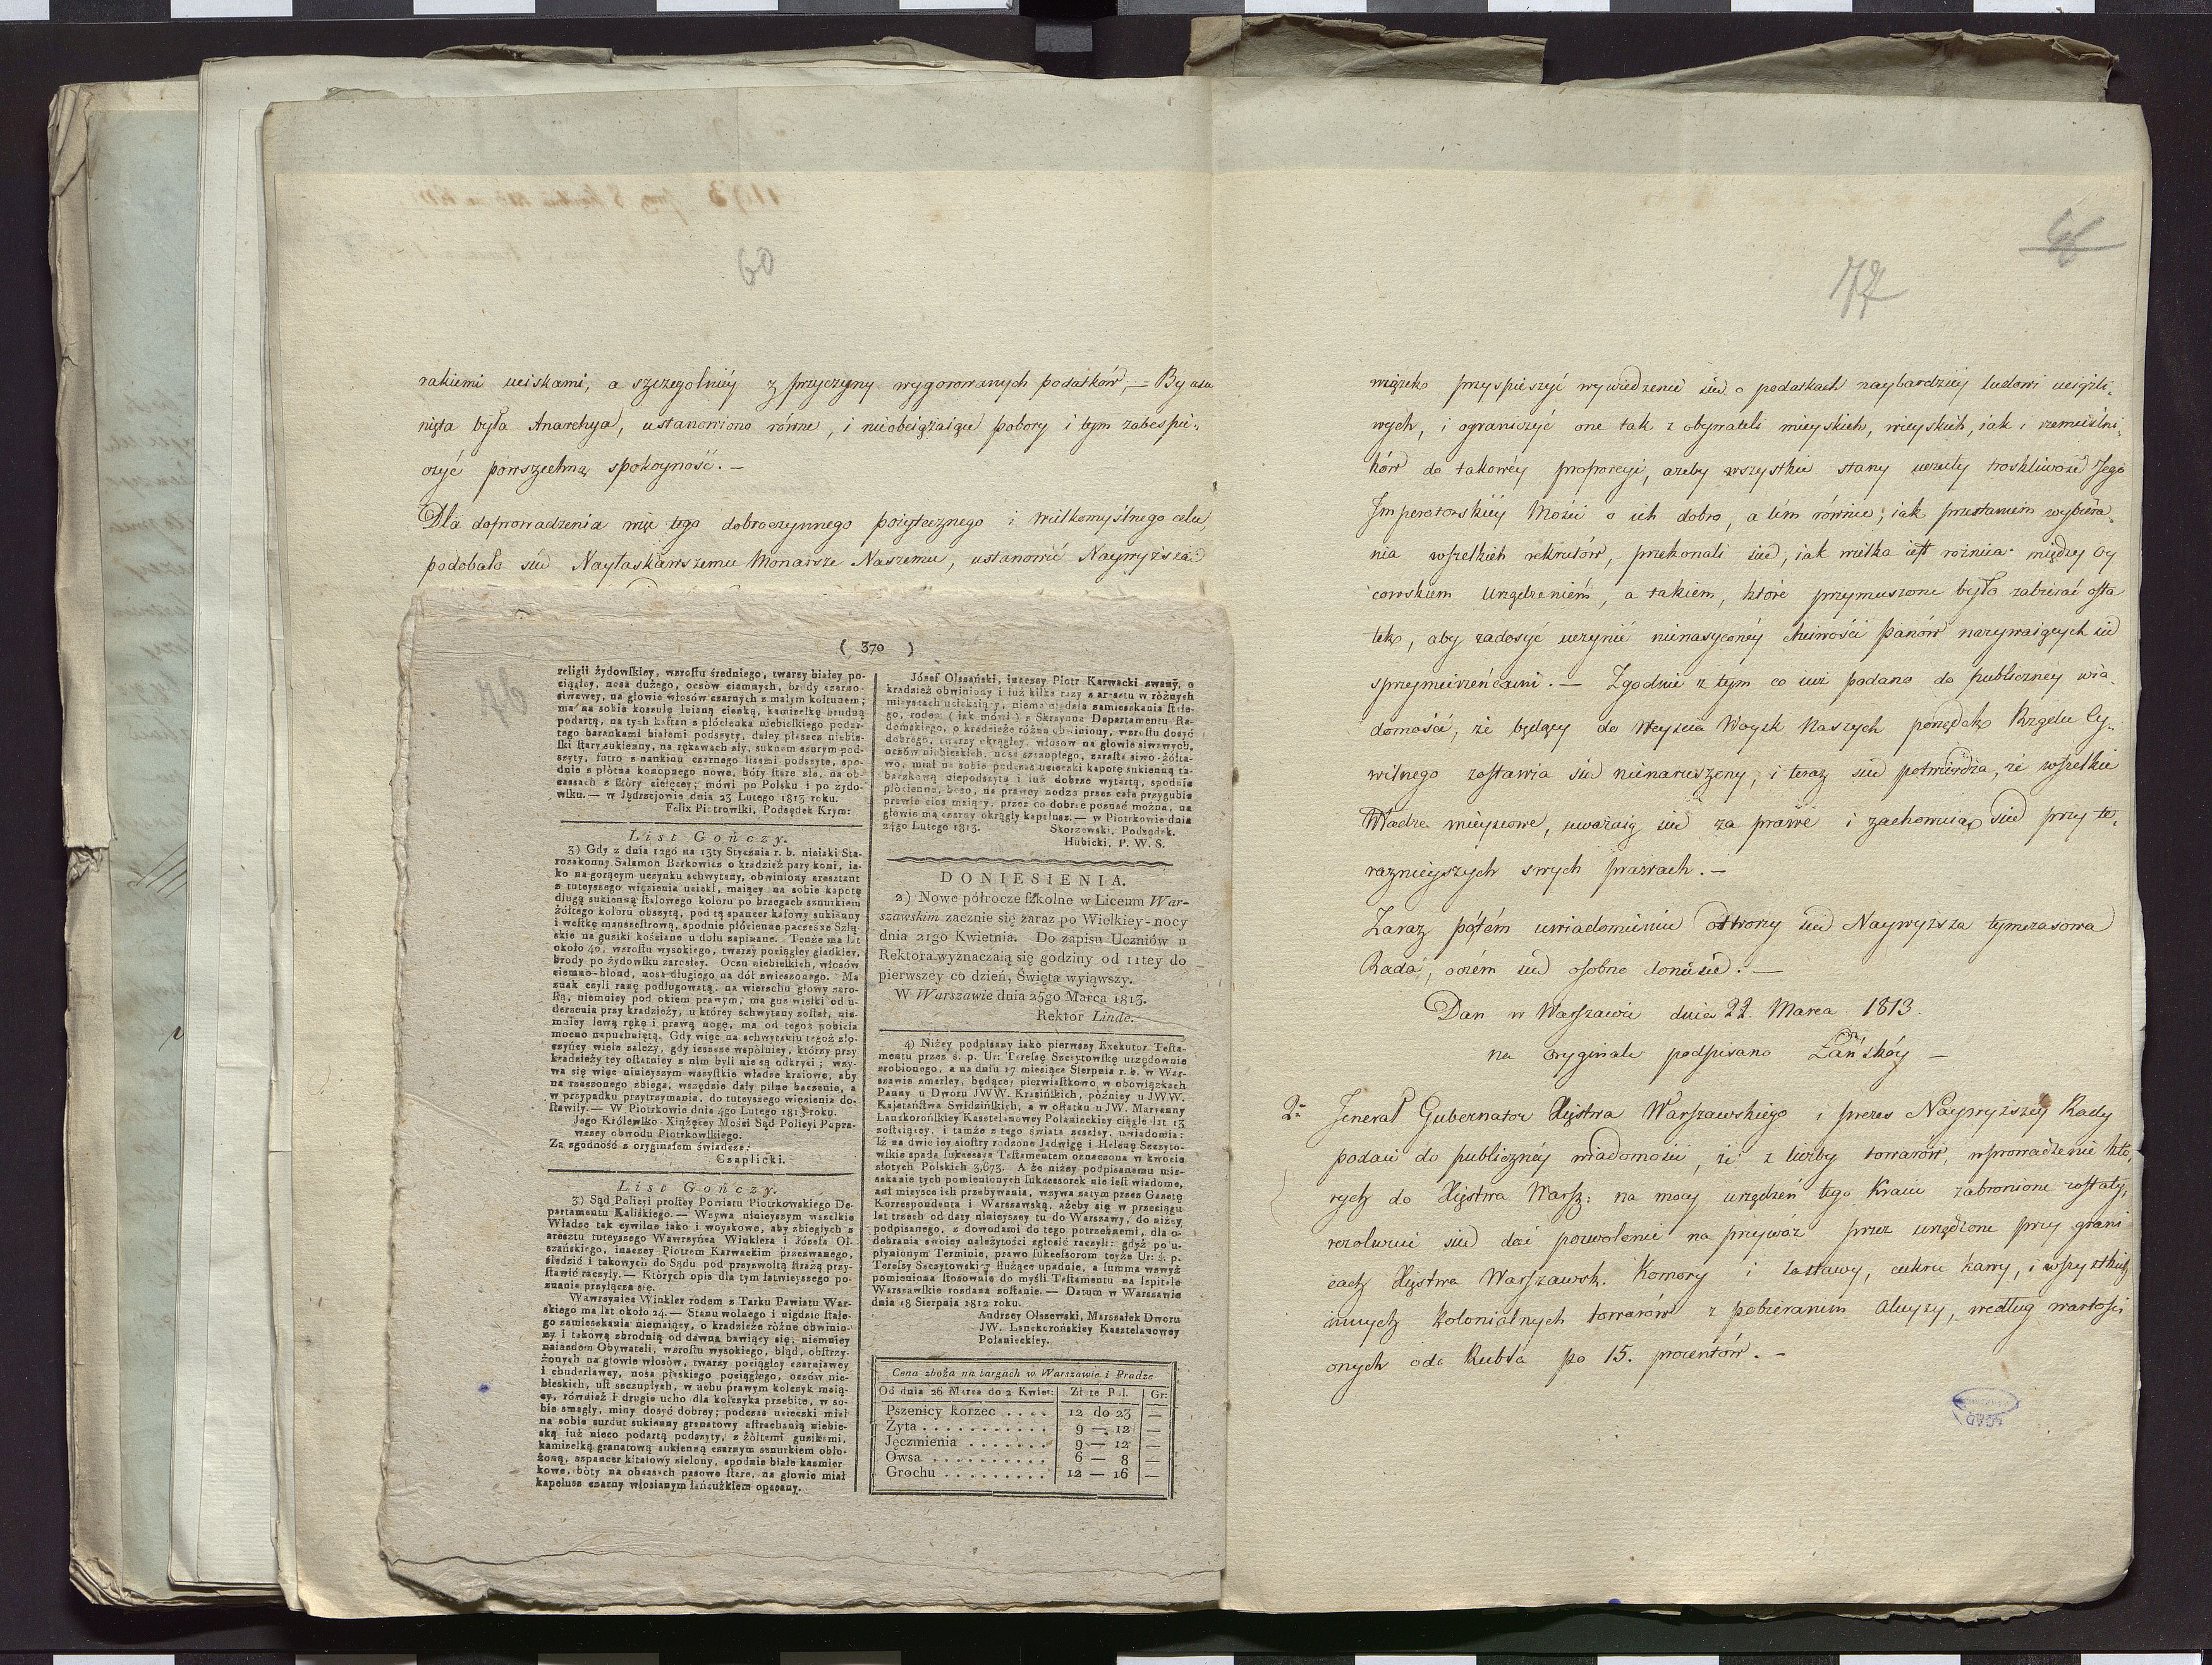 60
rakiemi uciskami, a szczególniéy z przyczyny wygorowanych podatków, — By usu
nięta była Anarchya, ustanowiono równe, i nieobciążaiące pobory i tym zabespie„
czyć powszechną spokoyność. —
Dla doprowadzenia więc tego dobroczynnego pożytecznego i wielkomyślnego celu
podobało się Nayłaskawszemu Monarsze Naszemu, ustanowić Naywyższą
( 370 )
religii żydowſkiey, wzroſtu średniego, twarzy białey po-
ciągłey, nosa dużego, oczów ciemnych, brody czarno-
siwawey, na głowie włosów czarnych z małym kołtunem;
ma na sobie koszulę lnianą cienką, kamizelkę brudną
podartą, na tych kaftan z płócienka niebieſkiego podar-
tego barankami białemi podszyty, daley płaszcz niebie-
ſki ſtary sukienny, na rękawach zły, suknem szurym pod-
szyty, futro z nankinu czarnego lisami podszyte, spo-
dnie z płótna konopnego nowe, bóty ſtare złe, na ob-
cassach z ſkóry cielęcey; mówi po Polsku i po żydo-
wſku. — w Jędrzejowie dnia 23 Lutego 1813 roku.
Felix Piotrowſki, Podsędek Krym:
List Gończy.
3) Gdy z dnia 12go na 13ty Stycznia r. b. niniaki Sta-
rozakonny Salamon Berkowicz o kradzież pary koni, ia-
ko na gorącym uczynku schwytany, obwiniony aresztant
z tuteyszego więzienia uciekł, maiący na sobie kapotę
długą sukienną ſtalowego koloru po brzegach sznurkiem
żółtego koloru obszytą, pod tą spancer kafowy sukienny
i weſtkę manszeſtrową, spodnie płócienne paczesne Szlą-
skie na guziki kościane u dołu zapinane. Tenże ma lat
około 40, wzroſtu wysokiego, twarzy pociągłey gładkiey,
brody po żydowſku zarosłey. Oczu niebieſkich, włosów
ciemno-blond, nosa długiego na dół zwieszonego. Ma
znak czyli ranę podługowatą, na wierzchu głowy zaro-
ſłą, niemniey pod okiem prawym, ma guz wielki od u-
derzenia przy kradzieży, u którey schwytany został, nie-
mniey lewą rękę i prawą nogę, ma od tegoż pobicia
mocno napuchniętą. Gdy więc na schwytaniu tegoż zło-
czyńcy wiele zależy, gdy ieszcze wspólnicy, którzy przy
kradzieży tey oſtatniey z nim byli nie są odkryci; wzy-
wa się więc ninieyszym wszyſtkie władze kraiowe, aby
na rzeczonego zbiega, wszędzie dały pilne baczenie, a
w przypadku przytrzymania, do tuteyszego więzienia do-
ſtawiły. — W Piotrkowie dnia 4go Lutego 1813 roku.
Jego Królewſko-Xiążęcey Mości Sąd Policyi Popra-
wczey obwodu Piotrkowſkiego.
Za zgodność z oryginałem świadczę:
Czaplicki.
List Gończy.
3) Sąd Policyi proſtey Powiatu Piotrkowskiego De-
partamentu Kaliſkiego. — Wzywa ninieyszym wszelkie
Władze tak cywilne iako i woyskowe, aby zbiegłych z
aresztu tuteyszego Wawrzyńca Winklera i Józefa Ol-
szańskiego, inaczey Piotrem Karwackim przezwanego,
śledzić i takowych do Sądu pod przyzwoitą ſtrażą przy-
ſtawić raczyły. — Których opis dla tym łatwieyszego po-
znania przyłącza się.
Wawrzyniec Winkler rodem z Tarku Pawiatu War-
skiego ma lat około 24. — Stanu wolnego i nigdzie ſtałe-
go zamieszkania niemaiący, o kradzieże różne obwinio-
ny i takową zbrodnią od dawna bawiący się, niemniey
naiazdem Obywateli, wzroſtu wysokiego, bląd, obſtrzy-
żonych na głowie włosów, twarzy pociągłey czarniawey
i chuderlawey, nosa płaskiego pociągłego, oczów nie-
bieskich, uſt szczupłych, w uchu prawym kolczyk maią-
cy, również i drugie ucho dla kolczyka przebite, w so-
bie smagły, miny dosyć dobrey; podczas ucieczki miał
na sobie surdut sukienny granatowy aſtrachanią niebie-
ską iuż nieco podartą podszyty, z żółtemi guzikami,
kamizelką granatową sukienną czarnym sznurkiem obło-
żoną, szpancer kitaiowy zielony, spodnie białe kazmier-
kowe, bóty na obcasach pasowe ſtare, na głowie miał
kapelusz czarny włosianym łańcużkiem opasany.
Józef Olszański, inaczey Piotr Karwacki zwany, o
kradzież obwiniony i iuż kilka razy z aresztu w różnych
mieyscach uciekaiący, niema nigdzie zamieszkania ſtałe-
go, rodem ( iak mówi ) z Skrzynna Departamentu Ra-
domskiego, o kradzieże różne obwiniony, wzroſtu dosyć
dobrego, twarzy okrągłey, włosow na głowie siwawych,
oczów niebieskich, nosa szczupłego, zarasta siwo-żółta-
wo, miał na sobie podczas ucieczki kapotę sukienną ta-
baczkową niepodszytą i iuż dobrze wytartą, spodnie
płócienne, boso, na prawey nodze przez całe przygubie
prawie cios maiący, przez co dobrze poznać można, na
głowie ma czarny okrągły kapelusz. — w Piotrkowie dnia
24go Lutego 1813. Skorzewski, Podsędek.
Hubicki, P. W. S.
DONIESIENIA.
2) Nowe półrocze ſzkolne w Liceum War-
szawskim zacznie się zaraz po Wielkiey-nocy
dnia 21go Kwietnia. Do zapisu Uczniów u
Rektora wyznaczaią się godziny od 11tey do
pierwszey co dzień, Święta wyiąwszy.
W Warszawie dnia 25go Marca 1813.
Rektor Linde.
4) Niżey podpisany iako pierwszy Exekutor Teſta-
mentu przez ś. p. Ur: Teresę Szczytowſkę urzędownie
zrobionego, a na dniu 17 miesiąca Sierpnia r. b. w War-
szawie zmarłey, będącey pierwiaſtkowo w obowiązkach
Panny u Dworu JWW. Krasińſkich, późniey u JWW.
Kajetańſtwa Swidzińſkich, a w oſtatku u JW. Maryanny
Lanzkorońſkiey Kasztelanowey Połanieckiey ciągle lat 13
zoſtaiącey, i tamże z tego świata zeszłey, uwiadomia:
Iż na dwie iey sioſtry rodzone Jadwigę i Helenę Szczyto-
wſkie spada ſukcessya Teſtamentem oznaczona w kwocie
złotych Polskich 3,673. A że niżey podpisanemu mie-
szkanie tych pomienionych ſukcessorek nie ieſt wiadome,
ani mieysce ich przebywania, wzywa zatym przez Gazetę
Korrespondenta i Warszawską, ażeby się w przeciągu
lat trzech od daty ninieyszey tu do Warszawy, do niżey
podpisanego, z dowodami do tego potrzebnemi, dla o-
debrania swoiey należytości zgłosić raczyli: gdyż po u-
płynionym Terminie, prawo ſukceſsorom teyże Ur: ś. p.
Teresſy Szczytowſkiey ſłużące upadnie, a ſumma wzwyż
pomieniona ſtosownie do myśli Teſtamentu na ſzpitale
Warszawſkie rozdana zoſtanie. — Datum w Warszawie
dnia 18 Sierpnia 1812 roku.
Andrzey Olszewski, Marszałek Dworu
JW. Lanckorońskiey Kasztelanowey
Połanieckiey.
Cena zboża na targach w Warszawie i Pradze
Od dnia 26 Marca do 2 Kwiet: Złote Pol. Gr:
Pszenicy korzec . . . . 12 do 23 —
Żyta . . . . . . . . . . . 9 — 12 —
Jęczmienia . . . . . . . 9 — 12 —
Owsa . . . . . . . . . . 6 — 8 —
Grochu . . . . . . . . . 12 — 16 —
77
przyspieszyć wywiedzenie się o podatkach naybardziéy ludowi uciążli„
wych, i ograniczyć one tak z obywateli mieyskich, wieyskich, iak i rzemieślni„
ków do takowéy proporcyi, ażeby wszystkie stany uczuły troskliwość Jego
Imperatorskiéy Mości o ich dobro, a tém równie, iak przestaniem wybiera„
nia wszelkich rekrutów, przekonali się, iak wielka iest różnica między oy
cowskiem urządzeniém, a takiem, które przymuszone było zabierać osta
tek, aby zadosyć uczynić nienasyconéy chciwości panów nazywaiących się
sprzymierzeńcami. — Zgodnie z tym co iuż podano do publicznéy wia„
domości, że będący do Weyścia Woysk Naszych porządek Rządu Cy„
wilnego zostawia się nienaruszony, i teraz się potwierdza, że wszelkie
Władze mieyscowe, uważaią się za prawe i zachowuią się przy te„
raznieyszych swych prawach. —
Zaraz potém uwiadomieniu otworzy się Naywyższa tymczasowa
Rada, oczém się osobno doniesie. —
Dan w Warszawie dnia 22. Marca 1813.
na oryginale podpisano Łańskóy —
2. Jenerał Gubernator Xięstwa Warszawskiego i prezes Naywyższey Rady
podaie do publicznéy wiadomości, że z liczby towarów, wprowadzenie któ„
rych do Xięstwa Warsz: na mocy urządzeń tego Kraiu zabronione zostały,
rezolwuie się dać pozwolenie na przywóz przez urządzone przy grani
cach Xięstwa Warszawsk. Komory i Zastawy, cukru kawy, i wszystkich
innych kolonialnych towarów z pobieraniem akcyzy, według wartości
onych odo Rubla po 15. procentów. —
AGAD